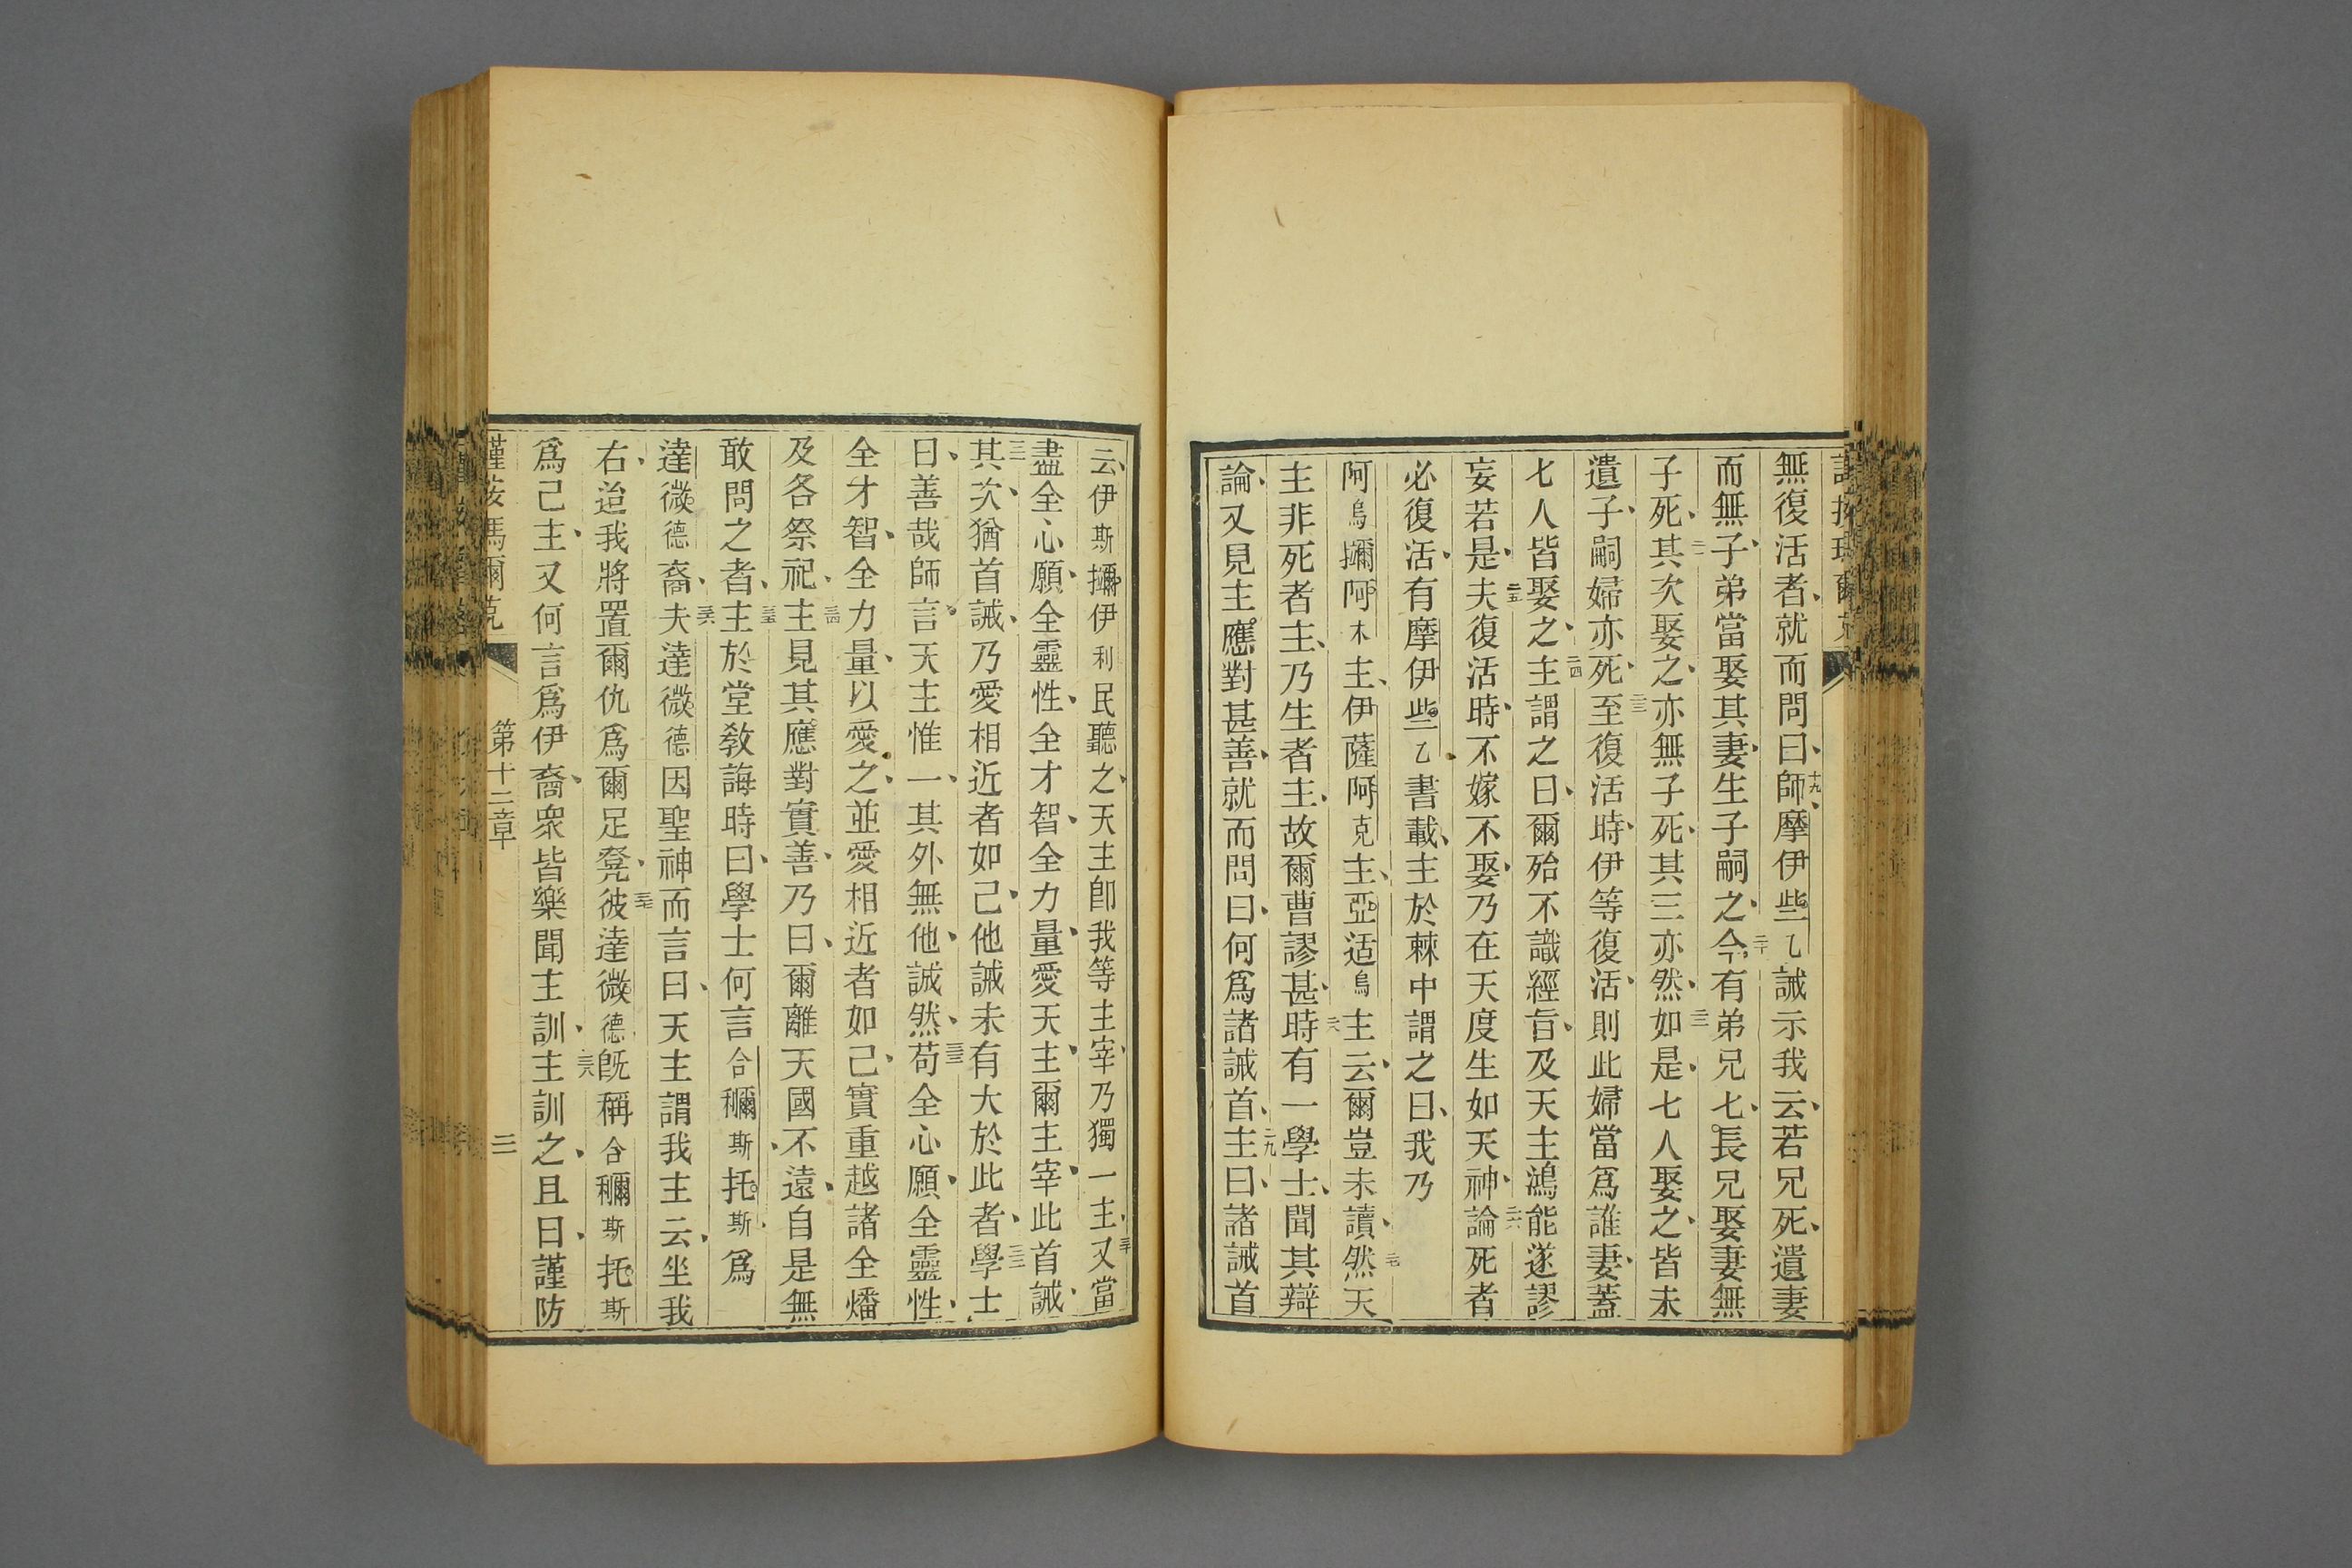 無復活者、就而問曰、十九師、摩伊些乙誡示我云、若兄死、遺妻
而無子、弟當娶其妻、生子嗣之、二十今、有弟兄七、長兄娶妻無
子死、二一其次娶之、亦無子死、其三亦然、二二如是、七人娶之、皆未
遺子、嗣婦亦死、二三至復活時、伊等復活、則此婦當爲誰妻、蓋
七人皆娶之、二四主謂之曰、爾殆不識經旨、及天主鴻能、遂謬
妄若是、二五夫復活時、不嫁不娶、乃在天度生如天神、二六論死者
必復活、有摩伊些乙書載、主於棘中謂之曰、我乃
阿烏擸阿木主、伊薩阿克主、亞适烏主云、爾豈未讀、二七然天
主非死者主、乃生者主、故爾曹謬甚、二八時有一學士、聞其辯
論、又見主應對甚善、就而問曰、何爲諸誡首、二九主曰、諸誡首
云、伊斯擸伊利民聽之、天主卽我等主宰、乃獨一主、三十又當
盡全心願、全靈性、全才智、全力量、愛天主、爾主宰、此首誡、
三一其次、猶首誡、乃愛相近者如己、他誡未有大於此者、三二學士
曰、善哉師言、天主惟一、其外無他、誠然、三三苟全心願、全靈性、
全才智、全力量、以愛之、並愛相近者如己、實重越諸全燔
及各祭祀、三四主見其應對實善、乃曰、爾離天國不遠、自是無
敢問之者、三五主於堂教誨時曰、學士何言合穪斯托斯爲
達微德裔、三六夫達微德因聖神而言曰、天主謂我主云、坐我
右、迨我將置爾仇爲爾足凳、三七彼達微德旣稱合穪斯托斯
爲己主、又何言爲伊裔、衆皆樂聞主訓、三八主訓之、且曰、謹防
謹按馬爾克 第十二章 二